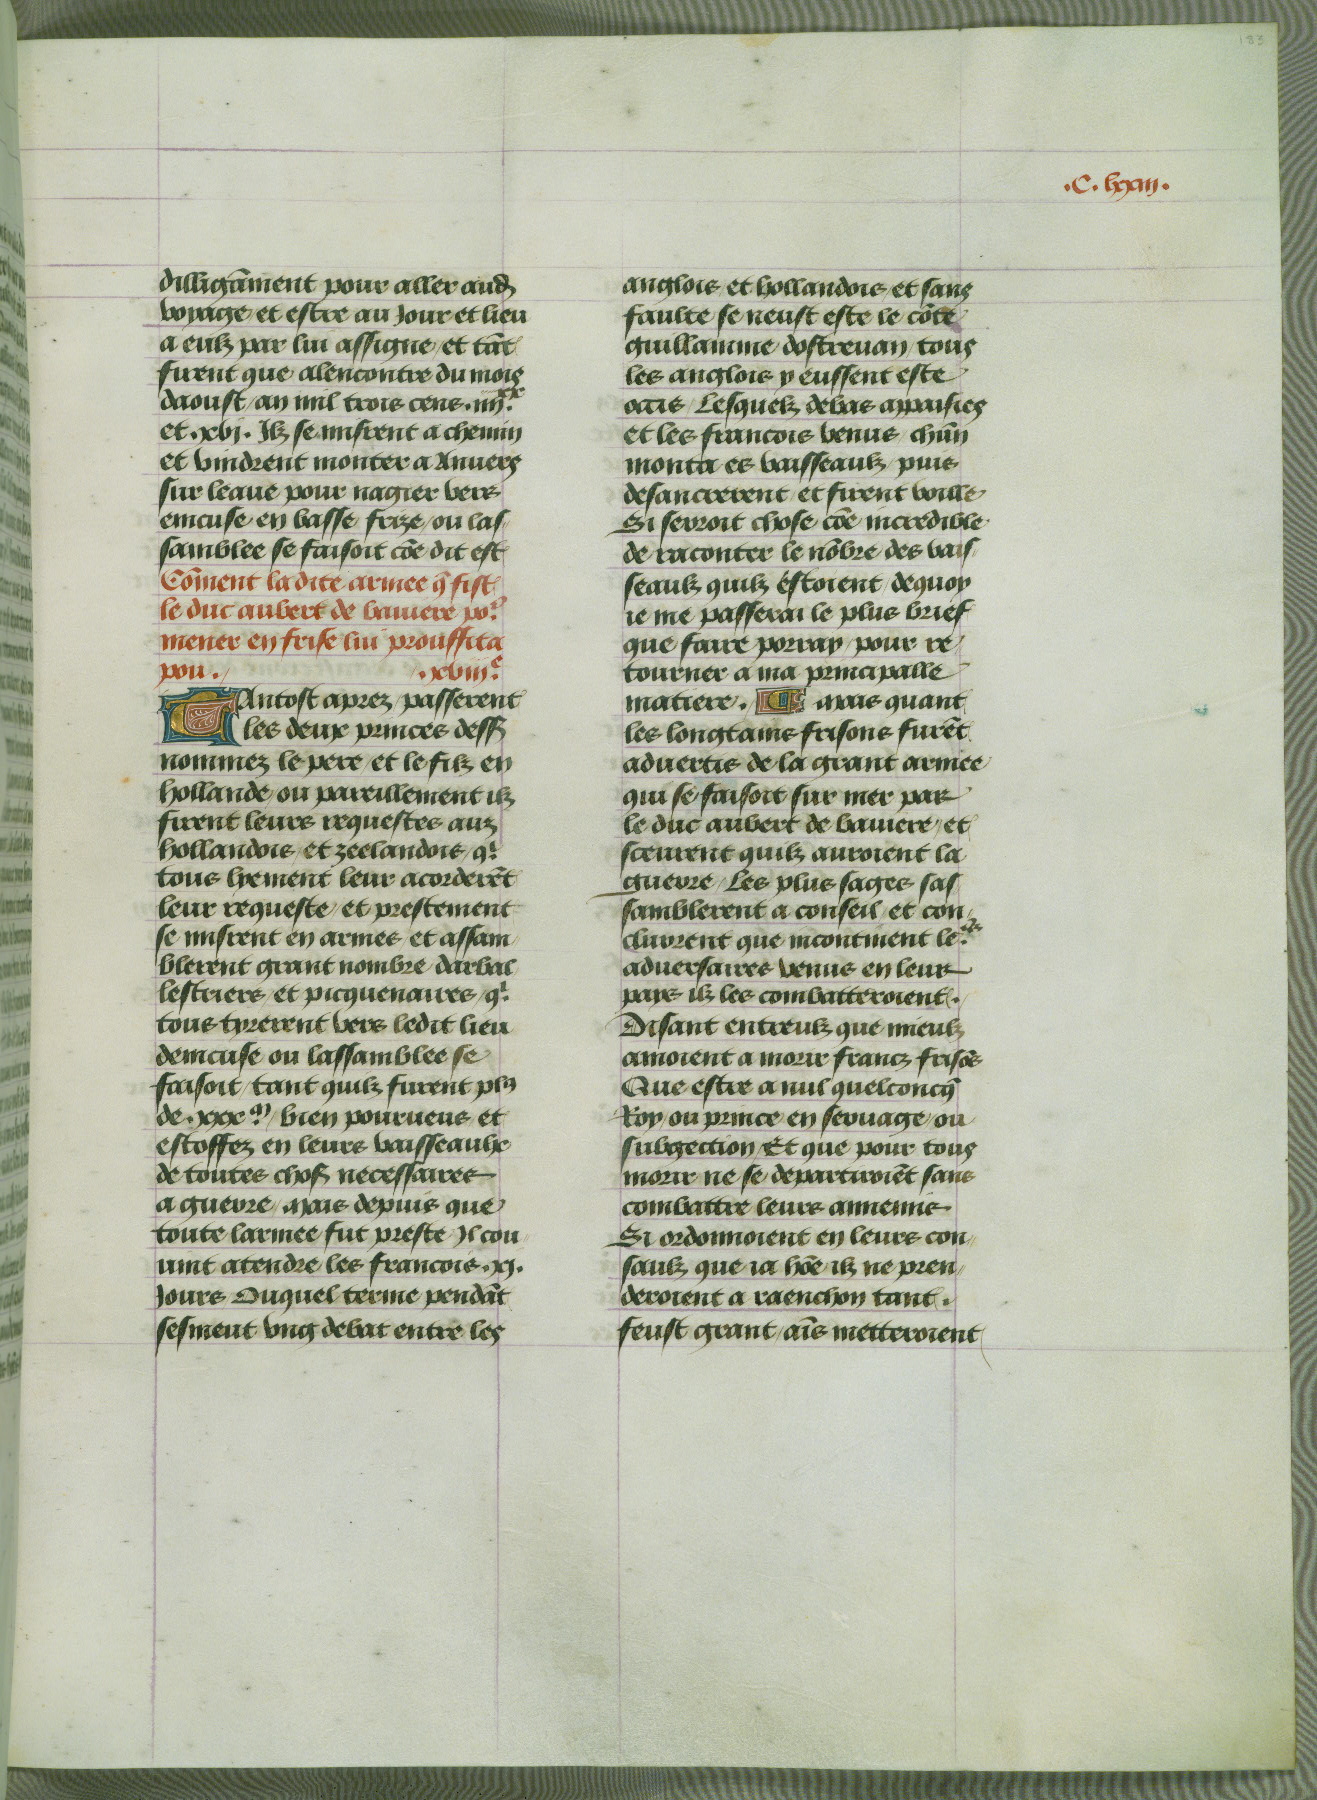 183
.C. lxxiii.
dilligāment pour aller aud
voyage et estre au Jour et lieu
a eulz par lui assigne / et tāt
furent que alencontre du mois
daoust / an mil trois cens .iiii.xx
et .xvj. Ilz se misrent a chemin
et vindrent monter a Anuers
sur leaue pour nagier vers
emcuse en basse frize / ou las/
samblee se faisoit cōe dit est
Cōment la dite armee q̄ fist
le duc aubert de bauiere po.r
mener en frise lui prouffita
pou ./ .xviii.e
Tantost aprez passerent
les deux princes dess
nommez le pere et le filz en
hollande ou pareillement ilz
firent leurs requestes auz
hollandois et zeelandois / q.i
tous lyement leur acorderēt
leur requeste / et prestement
se misrent en armes et assam/
blerent grant nombre darbal
lestriers / et picquenaires / q.i
tous tyrerent vers ledit lieu
demcuse ou lassamblee se
faisoit / tant quilz furent pl9
de .xxx.m / bien pourueus et
estoffez en leurs vaisseaulx
de toutes chos necessaires
a guerre / Mais depuis que
toute larmee fut preste Il cou/
uint atendre les francois .xj.
Jours Ouquel terme pendāt
sesmeut vng debat entre les
anglois et hollandois et sans
faulte se neust este le cōte
guillamme dostreuan / tous
les anglois y eussent este
ocis / Lesquelz debas appaisies
et les francois venus / chūn
monta es vaisseaulz / puis
desancrerent / et firent voille
Si seroit chose cōe incredible
de raconter le nōbre des vais/
seaulz quilz estoient / dequoy
ie me passerai le plus brief
que faire porray / pour re/
tourner a ma principalle
matiere . Mais quant
les longtains frisons furēt
aduertis de la grant armee
qui se faisoit sur mer par
le duc aubert de bauiere / et
sceurent quilz auroient la
guerre / Les plus sages sas/
samblerent a conseil / et con/
clurent que incontinent le.rs
aduersaires venus en leur
pays ilz les combatteroient .
Disant entreulz que mieulz
amoient a morir francz frisōs
Que estre a nul quelconcq̄
Roy ou prince en seruage / ou
subgection / Et que pour tous
morir ne se departiroiēt sans
combattre leurs annemis
Si ordonnoient en leurs con/
saulz que ia hōe ilz ne pren/
deroient a raenchon tant .
feust grant / aīs metteroient